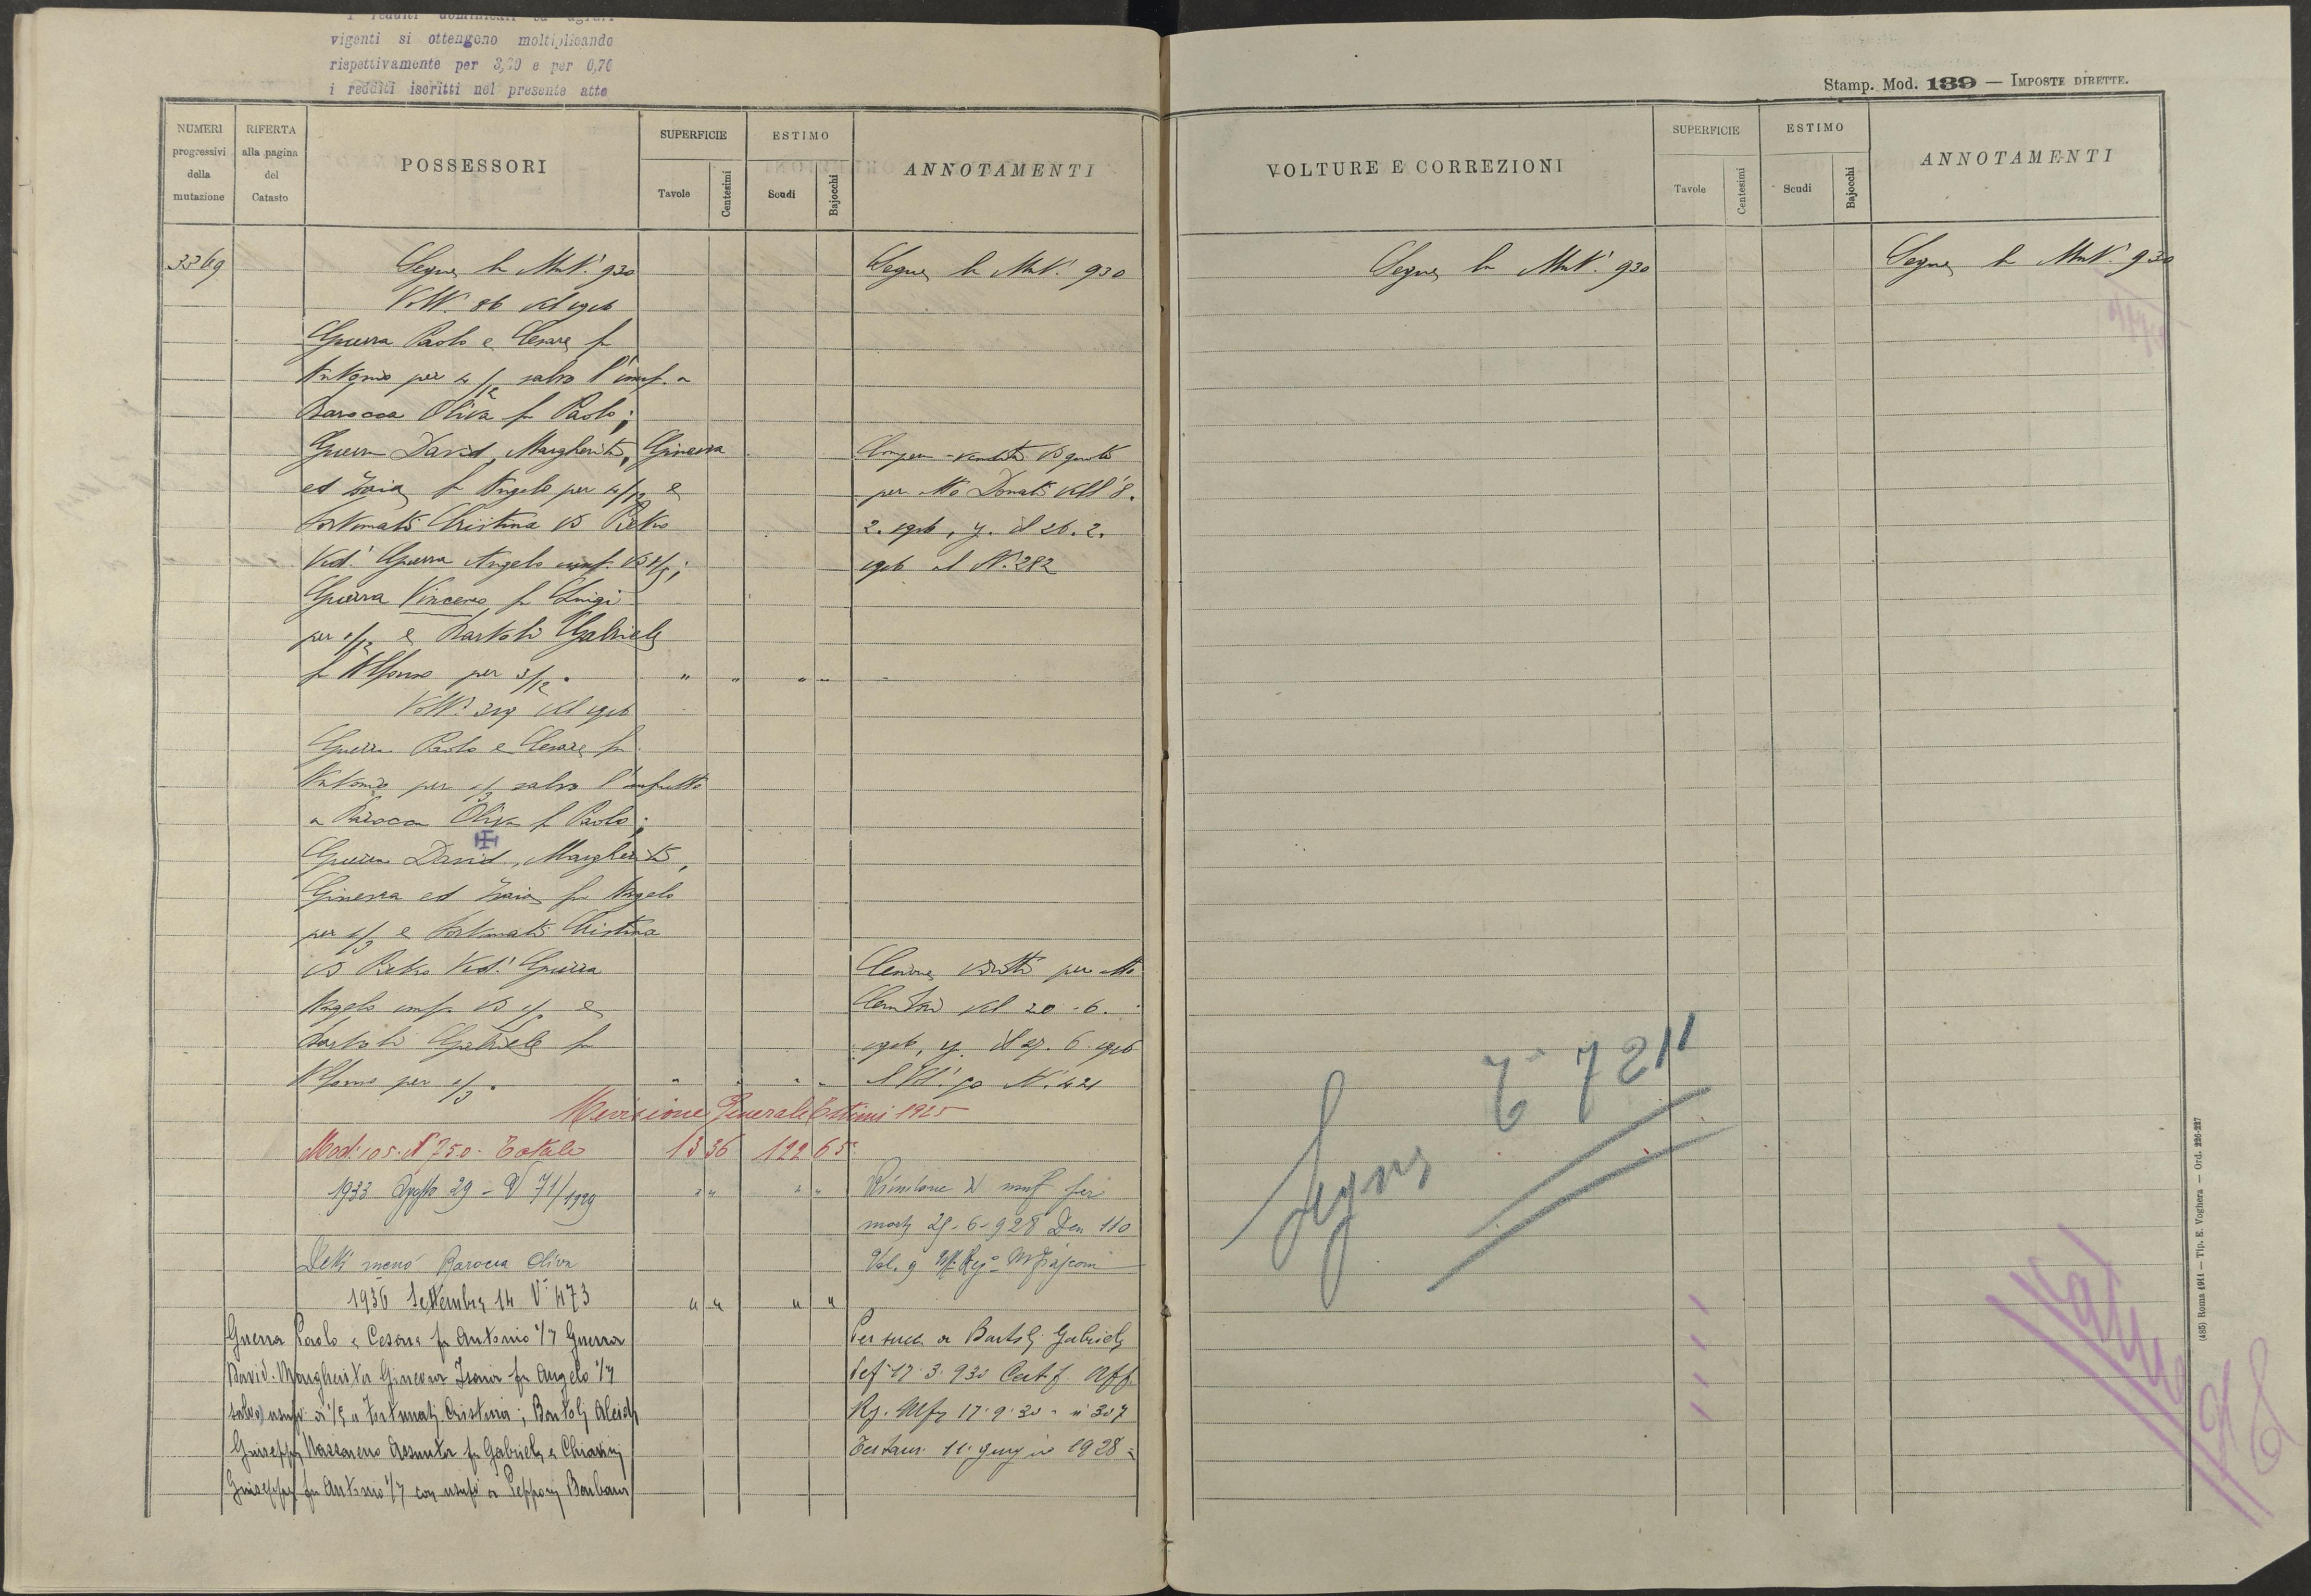 vigenti si ottengono moltiplicando
rispettivamente per 3,20 e per 0,70
i redditi iscritti nel presente atto
NUMERI progressivi della mutazione
RIFERTA alla pagina del Catasto
POSSESSORI
SUPERFICIE
Tavole
Centesimi
ESTIMO
Scudi
Bajocchi
ANNOTAMENTI
3369
Segue la Mut. 930
Segue la Mut. 930
Volt. 86 del 1916
Guerra Paolo e Cesare fu
Antonio per 4/12 salvo l'usuf. a
Barocca Oliva fu Paolo;
Guerra David, Margherita, Ginevra
ed Isaia fu Angelo per 4/12 e
Fortunati Cristina di Pietro
Ved. Guerra Angelo usuf. di
Guerra Vincenzo fu Luigi
per 1/12 e Bartoli Gabriele
fu Alfonso per 3/12.
Compra-vendita
per atto Donati dell' 8.
2. 1916, r. il 26. 2.
1916 al N. 282
Volt. 319 del 1916
Guerra Paolo e Cesare fu
Antonio per 1/3 salvo l'usufrutto
a Barocca Oliva fu Paolo;
Guerra David, Margherita,
Ginevra ed Isaia fu Angelo
per 1/3 e Fortunati Cristina
di Pietro Ved. Guerra
Angelo usuf. di e
Bartoli Gabriele fu
Alfonso per 1/3.
Cessione diritti per atto
del 20. 6.
1916, r. il 6. 1916
N. 421
Revisione Generale Estimi 1925
Mod. 105. N 750. Totale 13 36 122 65
1933 29 - V 71/1929
Riunione di usuf per
morte 29-6-928 Den 110
Vol. 9
Detti meno Barocca Oliva
1936 Settembre 14 V 473
Guerra Paolo e Cesare fu Antonio 1/7 Guerra
David. Margherita Ginevra Isaia fu Angelo 1/7
salvo usuf. di a Fortunati Cristina; Bartoli
Giuseppe Nazzareno Assunta fu Gabriele e
Giuseppe fu Antonio 1/7 con usuf. a Barbara
Per succ. a Bartoli Gabriele
def 17. 3. 930 Certif. Uff
Rg. 17. 9. 30 - n 307
Testam. 11 giugno 1928
Stamp. Mod. 139 — IMPOSTE DIRETTE.
VOLTURE E CORREZIONI
SUPERFICIE
Tavole
Centesimi
ESTIMO
Scudi
Bajocchi
ANNOTAMENTI
Segue la Mut. 930
Segue la Mut. 930
Segue 7211
(485) Roma 1911 — Tip. E. Voghera — Ord. 226-227